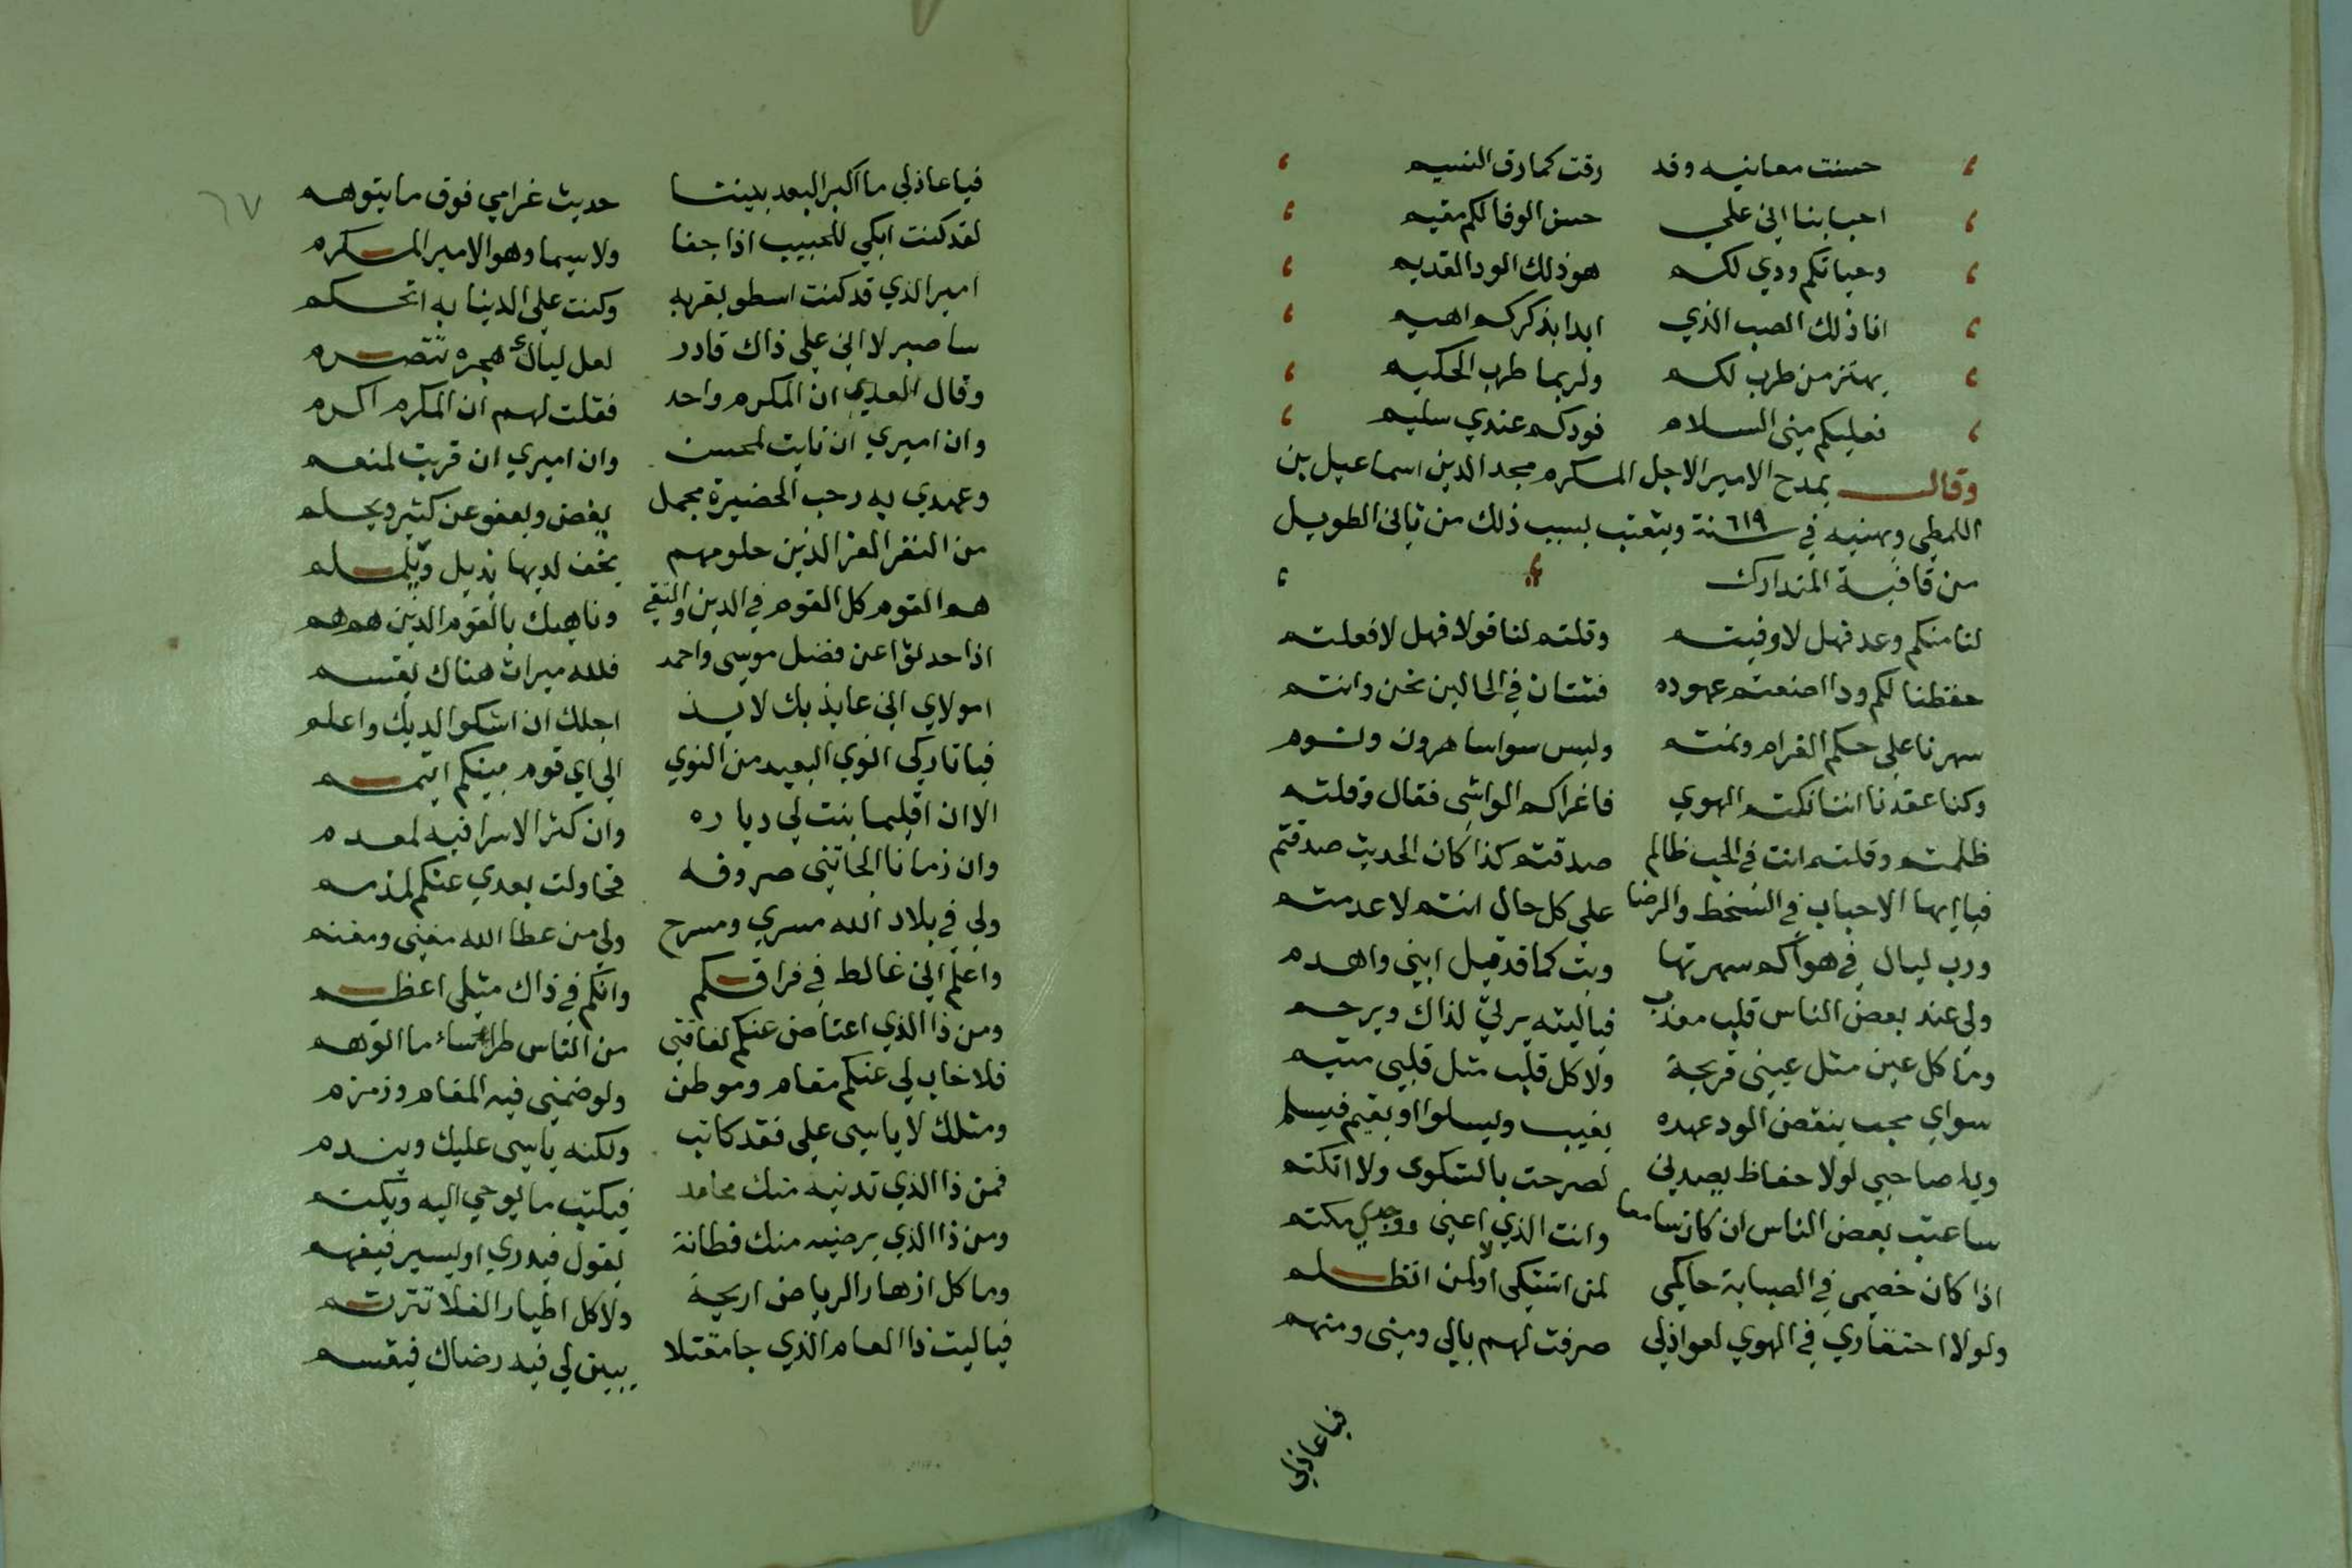 حسنت معانيه وقد رقت كما رق النسيم
احبابنا اني علي حسن الوفا لكم مقيم
وحياتكم ودي لكم هو ذلك الود القديم
انا ذلك الصب الذي ابدا بذكركم اهيم
يهتز من طرب لكم ولربما طرب الحكيم
فعليكم مني السلام فودكم عندي سليم
وقال يمدح الامير الاجل المكرم مجد الدين اسماعيل بن
اللمطي ويهنيه في سنة ٦١٩ ويتعتب بسبب ذلك من ثاني الطويل
من قافية المتدارك
لنا منكم وعد فهل لا وفيتم وقلتم لنا قولا فهل لا فعلتم
حفظنا لكم ودا اضعتم عهوده فشتان في الحالين نحن وانتم
سهرنا علي حكم الغرام ونمتم وليس سوا ساهرون ونوم
وكنا عقدنا اننا نكتم الهوي فاغراكم الواشي فقال وقلتم
ظلمتم وقلتم انت في الحب ظالم صدقتم كذا كان الحديث صدقتم
فيا ايها الاحباب في السخط والرضا علي كل حال انتم لا عدمتم
ورب ليال في هواكم سهرتها وبت كما قد قيل ابني واهدم
ولي عند بعض الناس قلب معذب فيا ليته يرثي لذاك ويرحم
وما كل عين مثل عيني قريحة ولا كل قلب مثل قلبي متيم
سواي محب ينقض الود عهده يغيب ويسلوا او يقيم فيسلم
ويا صاحبي لولا حفاظ يصدني لصرحت بالشكوي ولا اتكتم
ساعتب بعض الناس ان كان سامعا وانت الذي اعني ووجدي مكتم
اذا كان خصمي في الصبابة حاكمي لمن اشتكي او لمن اتظلم
ولولا احتقاري في الهوي لعواذلي صرفت لهم بالي ومني ومنهم
فيا عاذلي
٦٧
فيا عاذلي ما اكبر البعد بيننا حديث غرامي فوق ما يتوهم
لقد كنت ابكي للحبيب اذا جفا ولا سيما وهو الامير المكرم
امير الذي قد كنت اسطو بقربه وكنت علي الدنيا به اتحكم
ساصبر لا اني علي ذاك قادر لعل ليالي هجره تتصرم
وقال العدي ان المكرم واحد فقلت لهم ان المكرم اكرم
وان اميري ان نايت لمحسن وان اميري ان قربت لمنعم
وعهدي به رحب الحضيرة مجمل يغض ويعفو عن كثير ويحلم
من النفر الغر الذين حلومهم يخف لديها يذبل ويلملم
هم القوم كل القوم في الدين والتقي وناهيك بالقوم الذين هم هم
اذا حدثوا عن فضل موسي واحمد فلله ميراث هناك يقسم
امولاي اني عايذ بك لايذ اجلك ان اشكوا لديك واعلم
فيا تاركي انوي البعيد من النوي الي اي قوم بينكم اتيمم
الا ان اقليما نبت لي دياره وان كثر الاثرا فيه لمعدم
وان زمانا الجاتني صروفه فحاولت بعدي عنكم لمذمم
ولي في بلاد الله مسري ومسرح ولي من عطا الله مغني ومغنم
واعلم اني غالط في فراقكم وانكم في ذاك مثلي اعظم
ومن ذا الذي اعتاض عنكم لفاقتي من الناس طرا ساء ما اتوهم
فلا طاب لي عنكم مقام وموطن ولو ضمني فيه المقام وزمزم
ومثلك لا ياسي علي فقد كاتب ولكنه ياسي عليك ويندم
فمن ذا الذي تدنيه منك محامد فيكتب ما يوحي اليه ويكتم
ومن ذا الذي يرضيه منك فطانة يقول فيدري او يسير فيفهم
وما كل ازهار الرياض اريجة ولا كل اطيار الفلا تترنم
فيا ليت ذا العام الذي جا مقبلا يبين لي فيه رضاك فيقسم